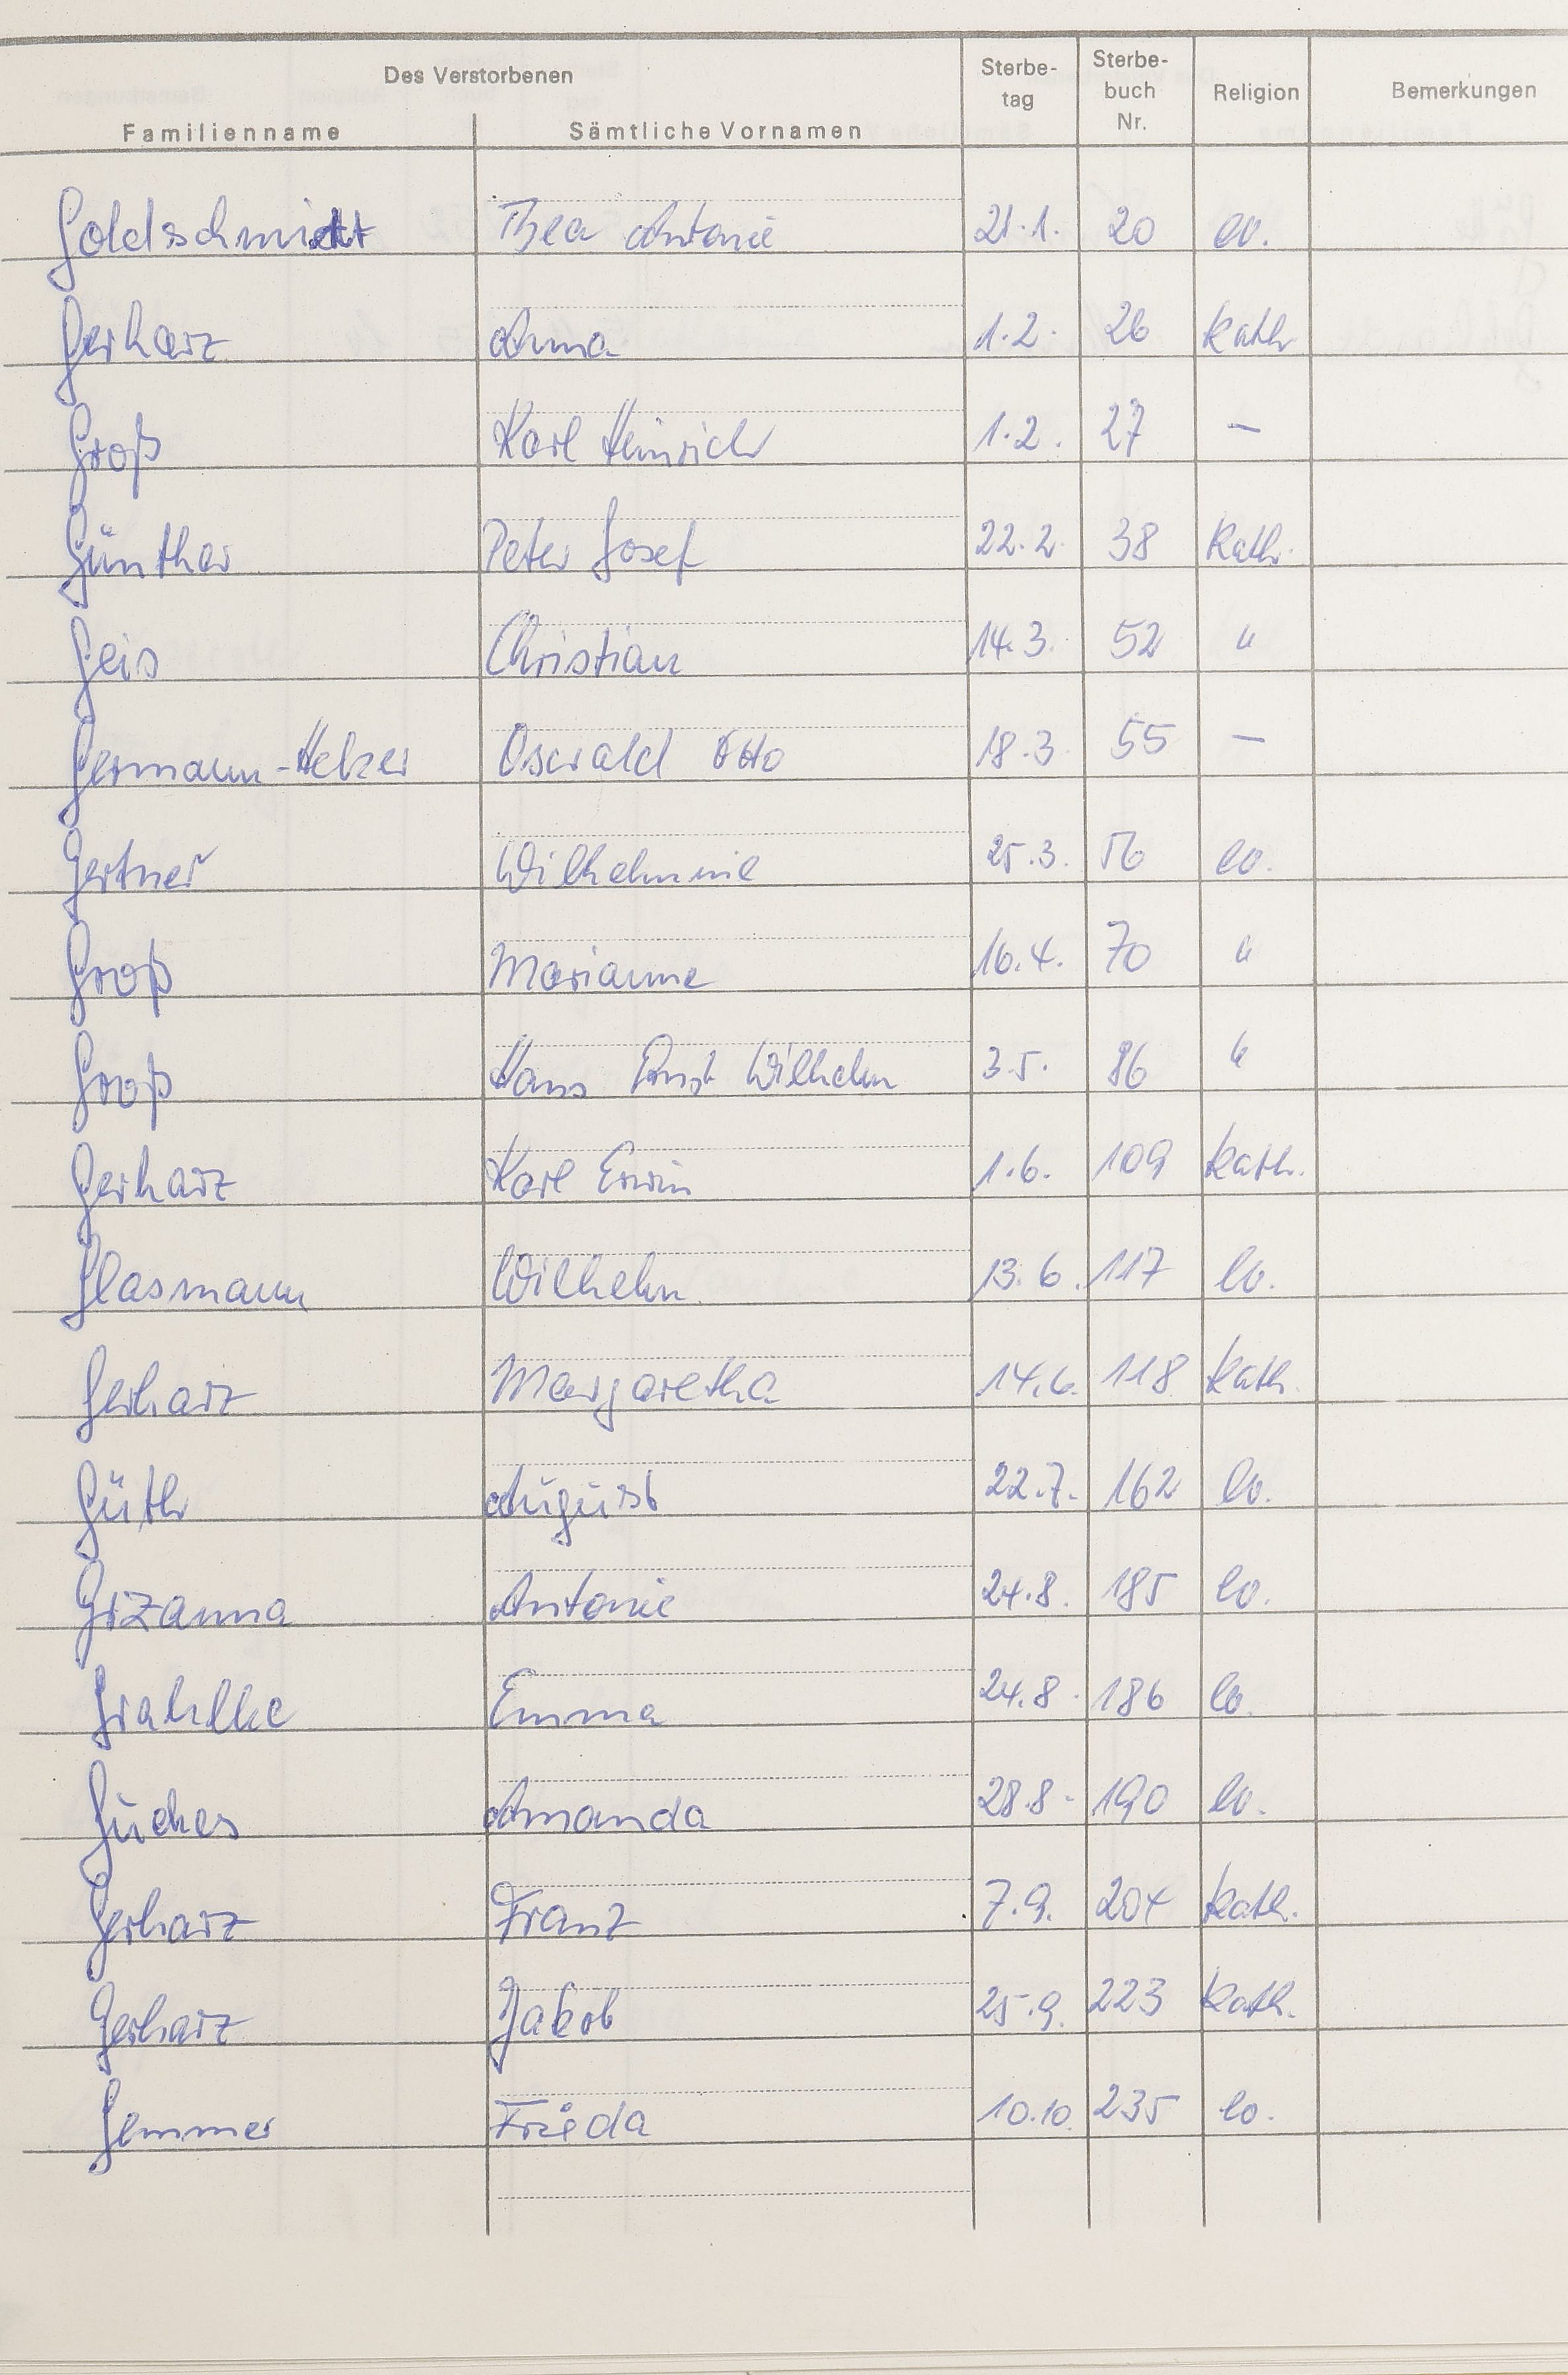 Des Verstorbenen
Familienname Sämtliche Vornamen Sterbe-tag Sterbe-buch Nr. Religion Bemerkungen
Goldschmidt Thea Antonie 21.1. 20 ev.
Gerharz Anna 1.2. 26 kath
Groß Karl Heinrich 1.2. 27 —
Günther Peter Josef 22.2. 38 kath.
Geis Christian 14.3. 52 "
Germann-Helzer Oswald Otto 18.3. 55 —
Gertner Wilhelmine 25.3. 56 ev.
Groß Marianne 16.4. 70 "
Groß Hans Ernst Wilhelm 3.5. 86 "
Gerharz Karl Erwin 1.6. 109 kath.
Glasmann Wilhelm 13.6. 117 ev.
Gerharz Margaretha 14.6. 118 kath.
Güth August 22.7. 162 ev.
Grzanna Antonie 24.8. 185 ev.
Emma 24.8. 186 ev.
Amanda 28.8. 190 ev.
Gerharz Franz 7.9. 204 kath.
Gerharz Jakob 25.9. 223 kath.
Gemmer Frieda 10.10. 235 ev.